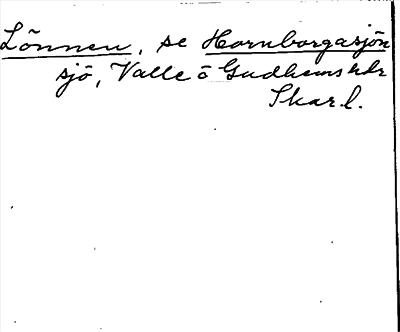 Lönnen, se Hornborgasjön
sjö, Valle o Gudhems hdr
Skar.l.